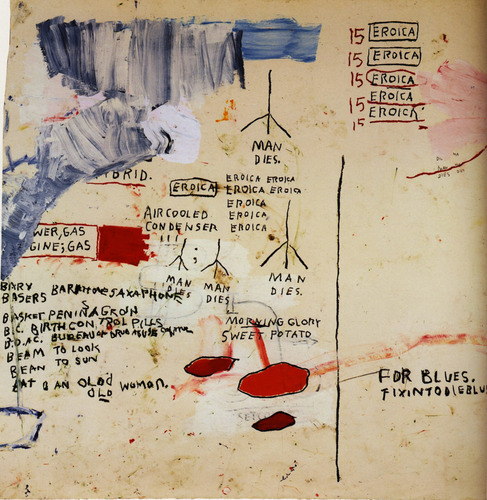 15 EROICA
15 EROICA
15 EROICA
15 EROICA
15 EROICA
MAN
DIES.
BRID.
EROICA EROICA
EROICA EROICA EROICA
EROICA
EROICA,
EROICA
AIR COOLED
CONDENSER
WER, GAS
GINE; GAS
MAN
DIES
MAN
DIES
MAN
DIES.
BARY BARITONE SAXAPHONE
BASERS
BASKET PENINAGRON
B.C. BIRTH CONTROL PILLS
BUREAU OF DRUG ABUSE
BEAM TO LOOK
BEAN TO SUN
EAT
AN OLD WOMAN.
OLD
MORNING GLORY
SWEET POTATO
FOR BLUES.
FIXINTODIEBLU